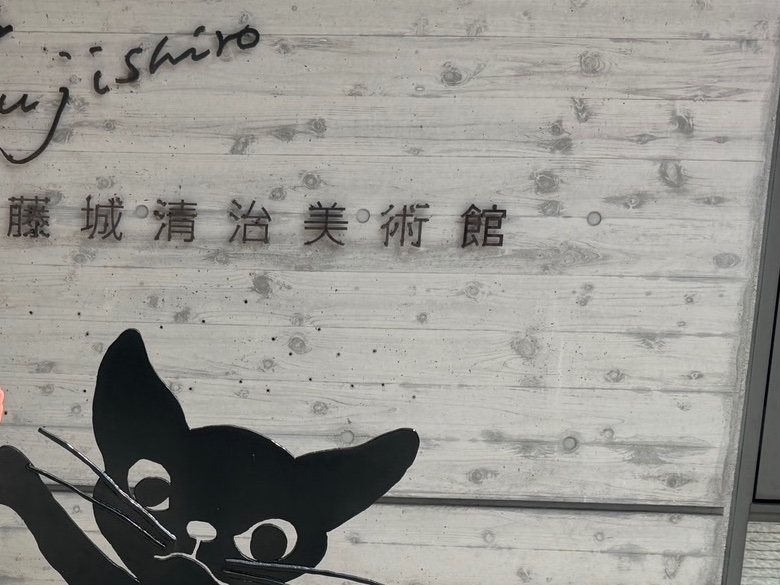 ujishiro
藤城清治美術館